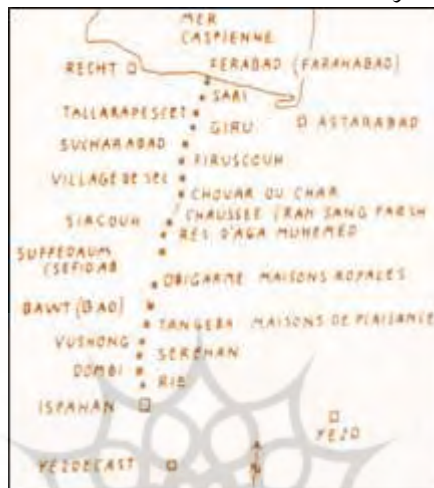 MER
CASPIENNE
RECHT
FERABAD (FARAHABAD)
SARI
TALLARAPESCET
GIRU
ASTARABAD
SUCHARABAD
FIRUSCOUH
VILLAGE DE SEL
CHOUAR OU CHAR
SIRCOUH
CHAUSSEE (RAH SANG FARSH
RES D'AGA MUHEMED
SUFFEDAUM
(SEFIDAB
OBIGARME MAISONS ROYALES
BAWT (BAD)
TANGEBA MAISONS DE PLAISANCE
VUSHONG
SEREHAN
DOMBI
RIB
ISPAHAN
YEZD
YEZDECAST
N